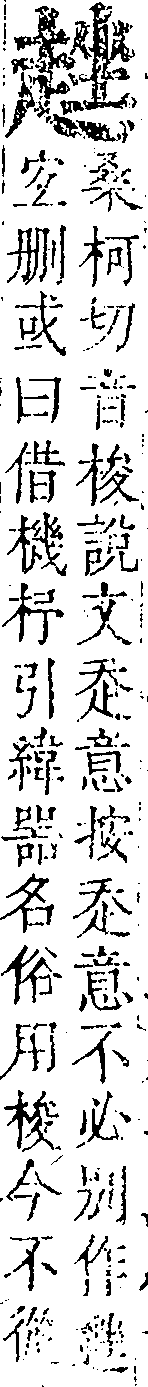 趖
桑柯切音梭說文走意按走意不必別作趖
宐刪或曰借機杼引緯器名俗用梭今不從